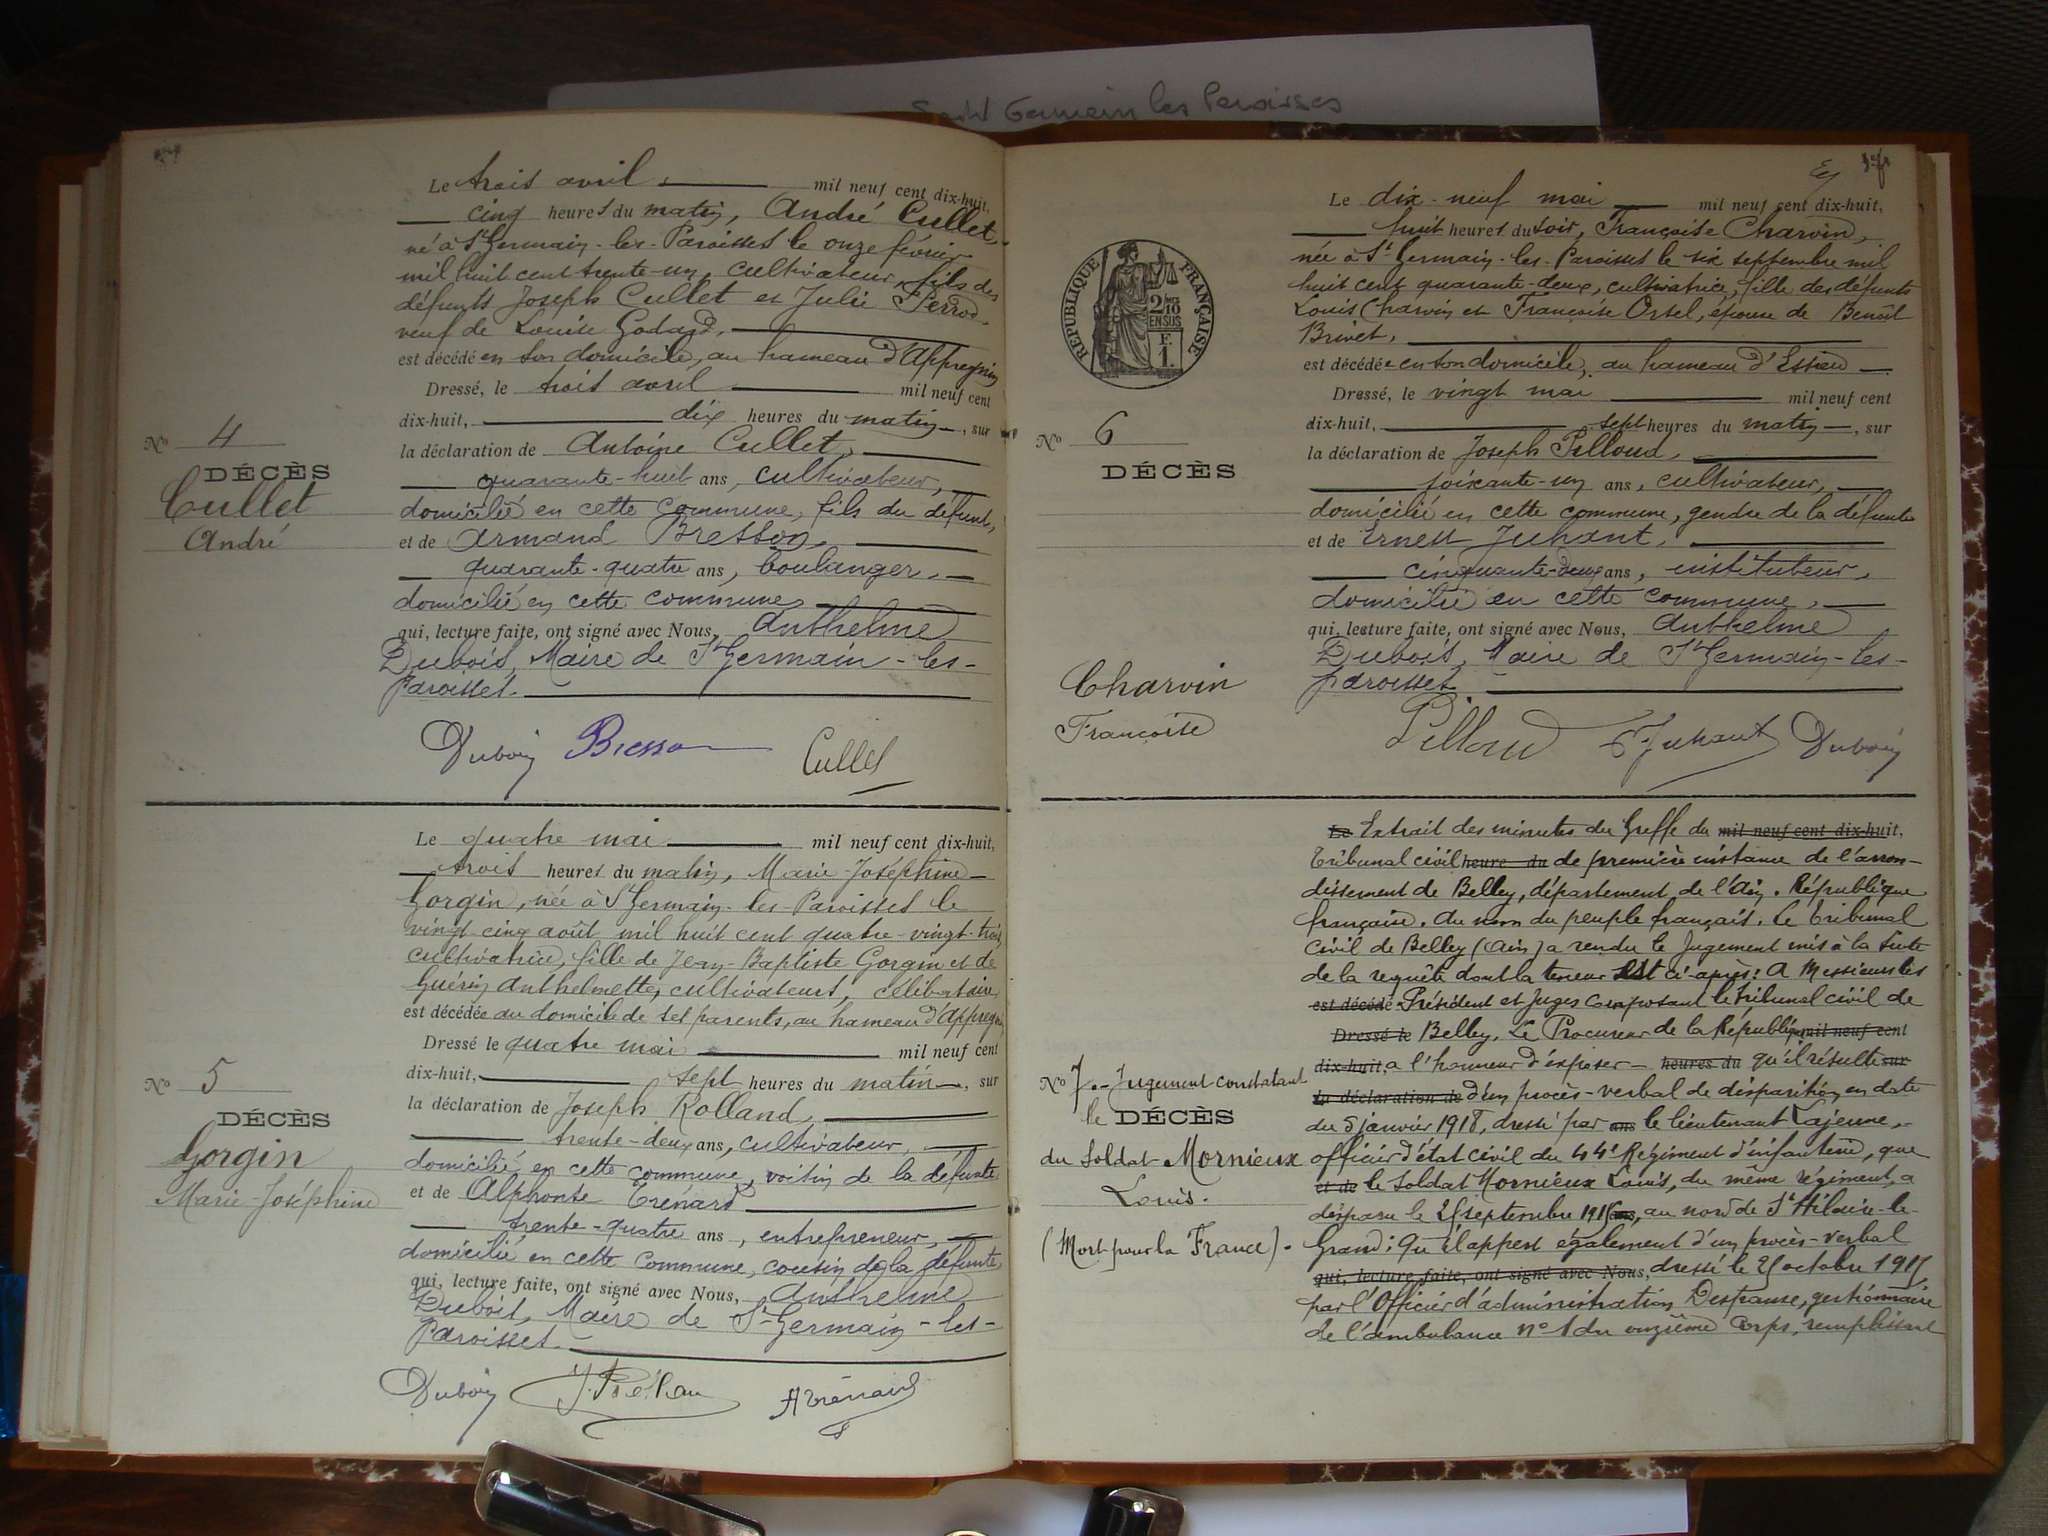 Saint Germain les Paroisses
Le trois avril, mil neuf cent dix-huit,
cinq heures du matin, André Cullet,
né à St Germain-les-Paroisses le onze février
mil huit cent trente-un, cultivateur, fils des
défunts Joseph Cullet et Julie Perrod,
veuf de Louise Godard,
est décédé en son domicile, au hameau d'Appregnin
Dressé, le trois avril mil neuf cent
dix-huit, dix heures du matin, sur
No 4
la déclaration de Antoine Cullet,
DÉCÈS
quarante-huit ans, cultivateur,
Cullet
domicilié en cette commune, fils du défunt,
André
et de Armand Bresson,
quarante-quatre ans, boulanger,
domicilié en cette commune,
qui, lecture faite, ont signé avec Nous, Anthelme
Dubois, Maire de St Germain-les-
Paroisses.
Dubois Bresson Cullet
Le quatre mai mil neuf cent dix-huit,
trois heures du matin, Marie-Joséphine
Gorgin, née à St Germain-les-Paroisses le
vingt cinq août mil huit cent quatre-vingt-trois,
cultivatrice, fille de Jean-Baptiste Gorgin et de
Guérin Anthelmette, cultivateurs, célibataire,
est décédée au domicile de ses parents, au hameau d'Appregnin,
Dressé le quatre mai mil neuf cent
dix-huit, sept heures du matin, sur
No 5
la déclaration de Joseph Rolland,
DÉCÈS
trente-deux ans, cultivateur,
Gorgin
domicilié en cette commune, voisin de la défunte
Marie-Joséphine
et de Alphonse Trénard
trente-quatre ans, entrepreneur,
domicilié en cette commune, cousin de la défunte,
qui, lecture faite, ont signé avec Nous, Anthelme
Dubois, Maire de St Germain-les-
Paroisses.
Dubois A Trénard
RÉPUBLIQUE FRANÇAISE
2/10
EN SUS
F.
1.
Le dix-neuf mai mil neuf cent dix-huit,
huit heures du soir, Françoise Charvin,
née à St Germain-les-Paroisses le six septembre mil
huit cent quarante-deux, cultivatrice, fille des défunts
Louis Charvin et Françoise Orsel, épouse de Benoit
Brivet,
est décédée en son domicile, au hameau d'Essieu
Dressé, le vingt mai mil neuf cent
dix-huit, sept heures du matin, sur
No 6
la déclaration de Joseph Pilloud,
DÉCÈS
soixante-un ans, cultivateur,
domicilié en cette commune, gendre de la défunte
et de Ernest Juhant,
cinquante-deux ans, instituteur,
domicilié en cette commune,
qui, lecture faite, ont signé avec Nous, Anthelme
Dubois, Maire de St Germain-les-
paroisses.
Charvin
Françoise
Pilloud E. Juhant Dubois
Le Extrait des minutes du Greffe du mil neuf cent dix-huit,
Tribunal civil heure du de première instance de l'arron-
dissement de Belley, département de l'Ain. République
française. Au nom du peuple français. Le Tribunal
civil de Belley (Ain) a rendu le Jugement mis à la suite
de la requête dont la teneur est ci-après: A Messieurs les
est décédé Président et Juges composant le tribunal civil de
Dressé le Belley. Le Procureur de la République mil neuf cent
dix-huit, a l'honneur d'exposer - heures du qu'il résulte sur
No 7.- Jugement constatant
la déclaration de d'un procès-verbal de disparition en date
le DÉCÈS
du 5 janvier 1918, dressé par ans le lieutenant Lajeune,
du Soldat Mornieux
officier d'état civil du 44e Régiment d'infanterie, que
Louis.
et de le Soldat Mornieux Louis, du même régiment, a
disparu le 25 septembre 1915 ans, au nord de St Hilaire-le-
(Mort pour la France).
Grand; Qu'il appert également d'un procès-verbal
qui, lecture faite, ont signé avec Nous, dressé le 25 octobre 1915,
par l'Officier d'administration Despause, gestionnaire
de l'ambulance no 1 du onzième Corps, remplissant